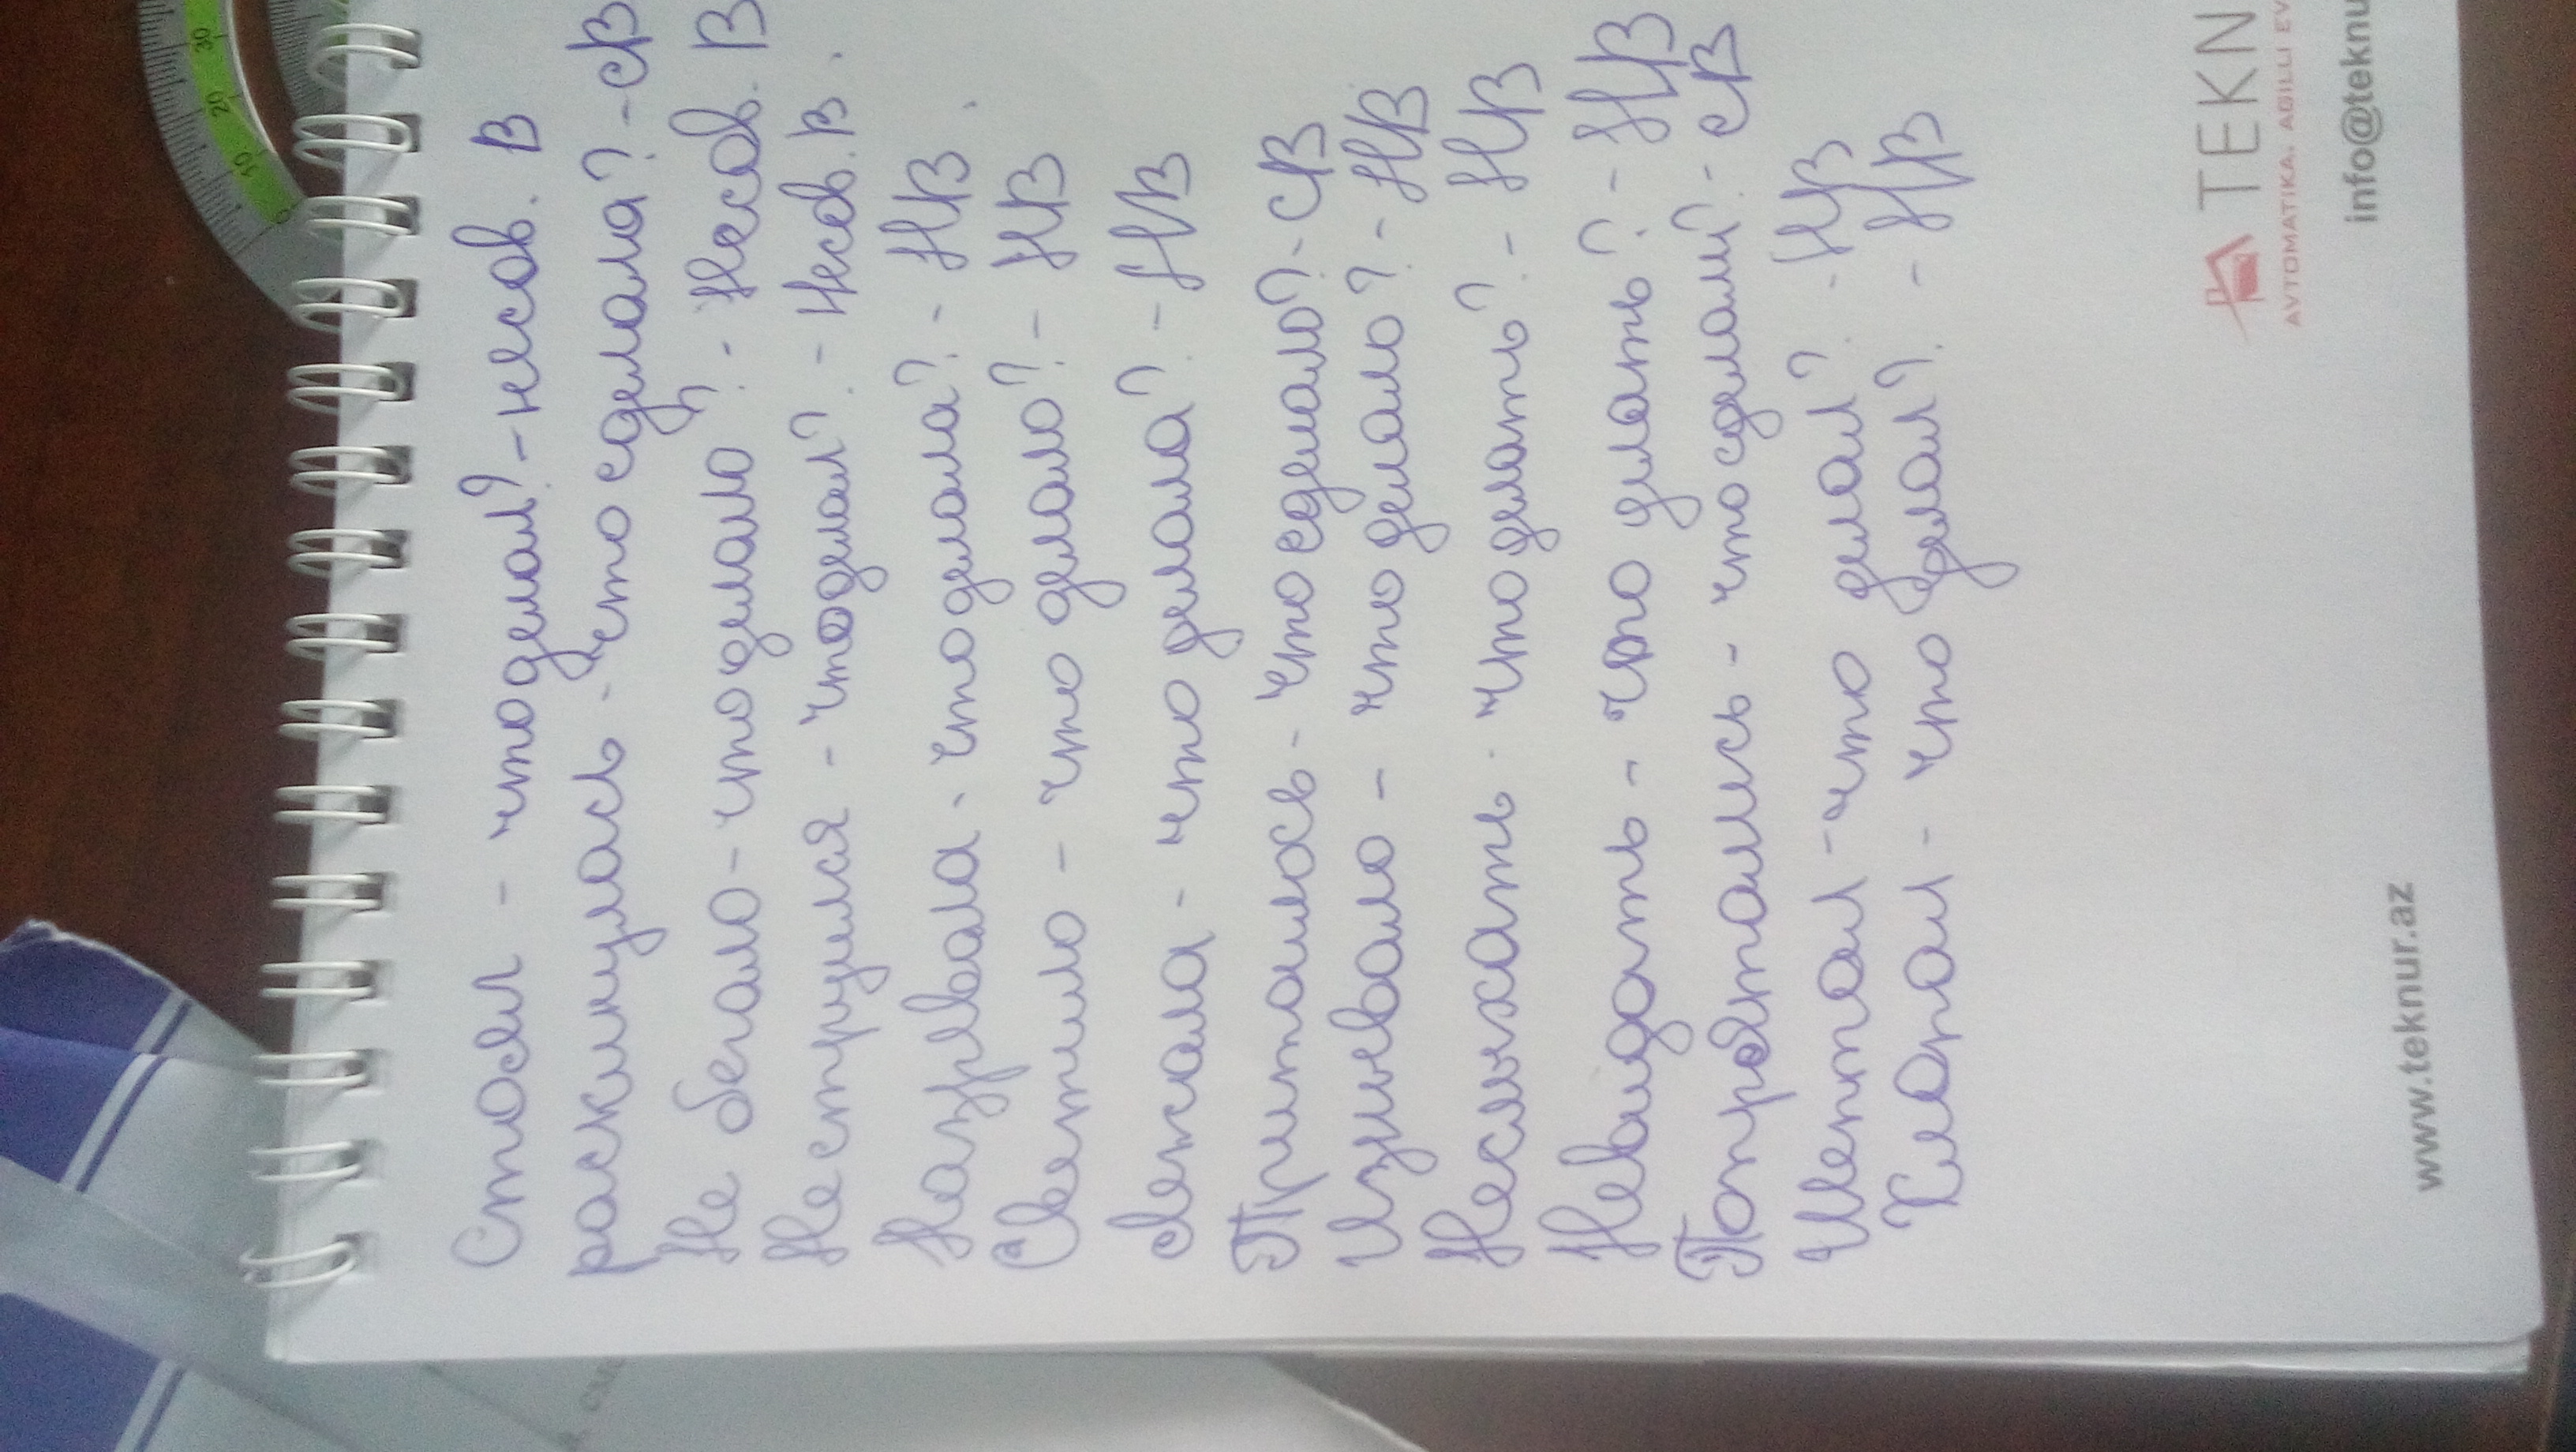 Стоял - что делал? - несов. В
раскинулась - что сделала? - СВ
Не бегало - что делало? - Несов. В
Не струился - что делал? - Несов. В.
Назревала - что делала? - НВ.
Светило - что делало? - НВ
лежала - что делала? - НВ
Приталось - что сделало? - СВ
Изнывало - что делало? - НВ
Неслыхать - что делать? - НВ
Невидать - что делать? - НВ
Попрятались - что сделали? - СВ
Шептал - что делал? - НВ
Хлопал - что делал? - НВ
TEKN
AVTOMATIKA. AĞILLI EV
info@teknu
www.teknur.az
10 20 30